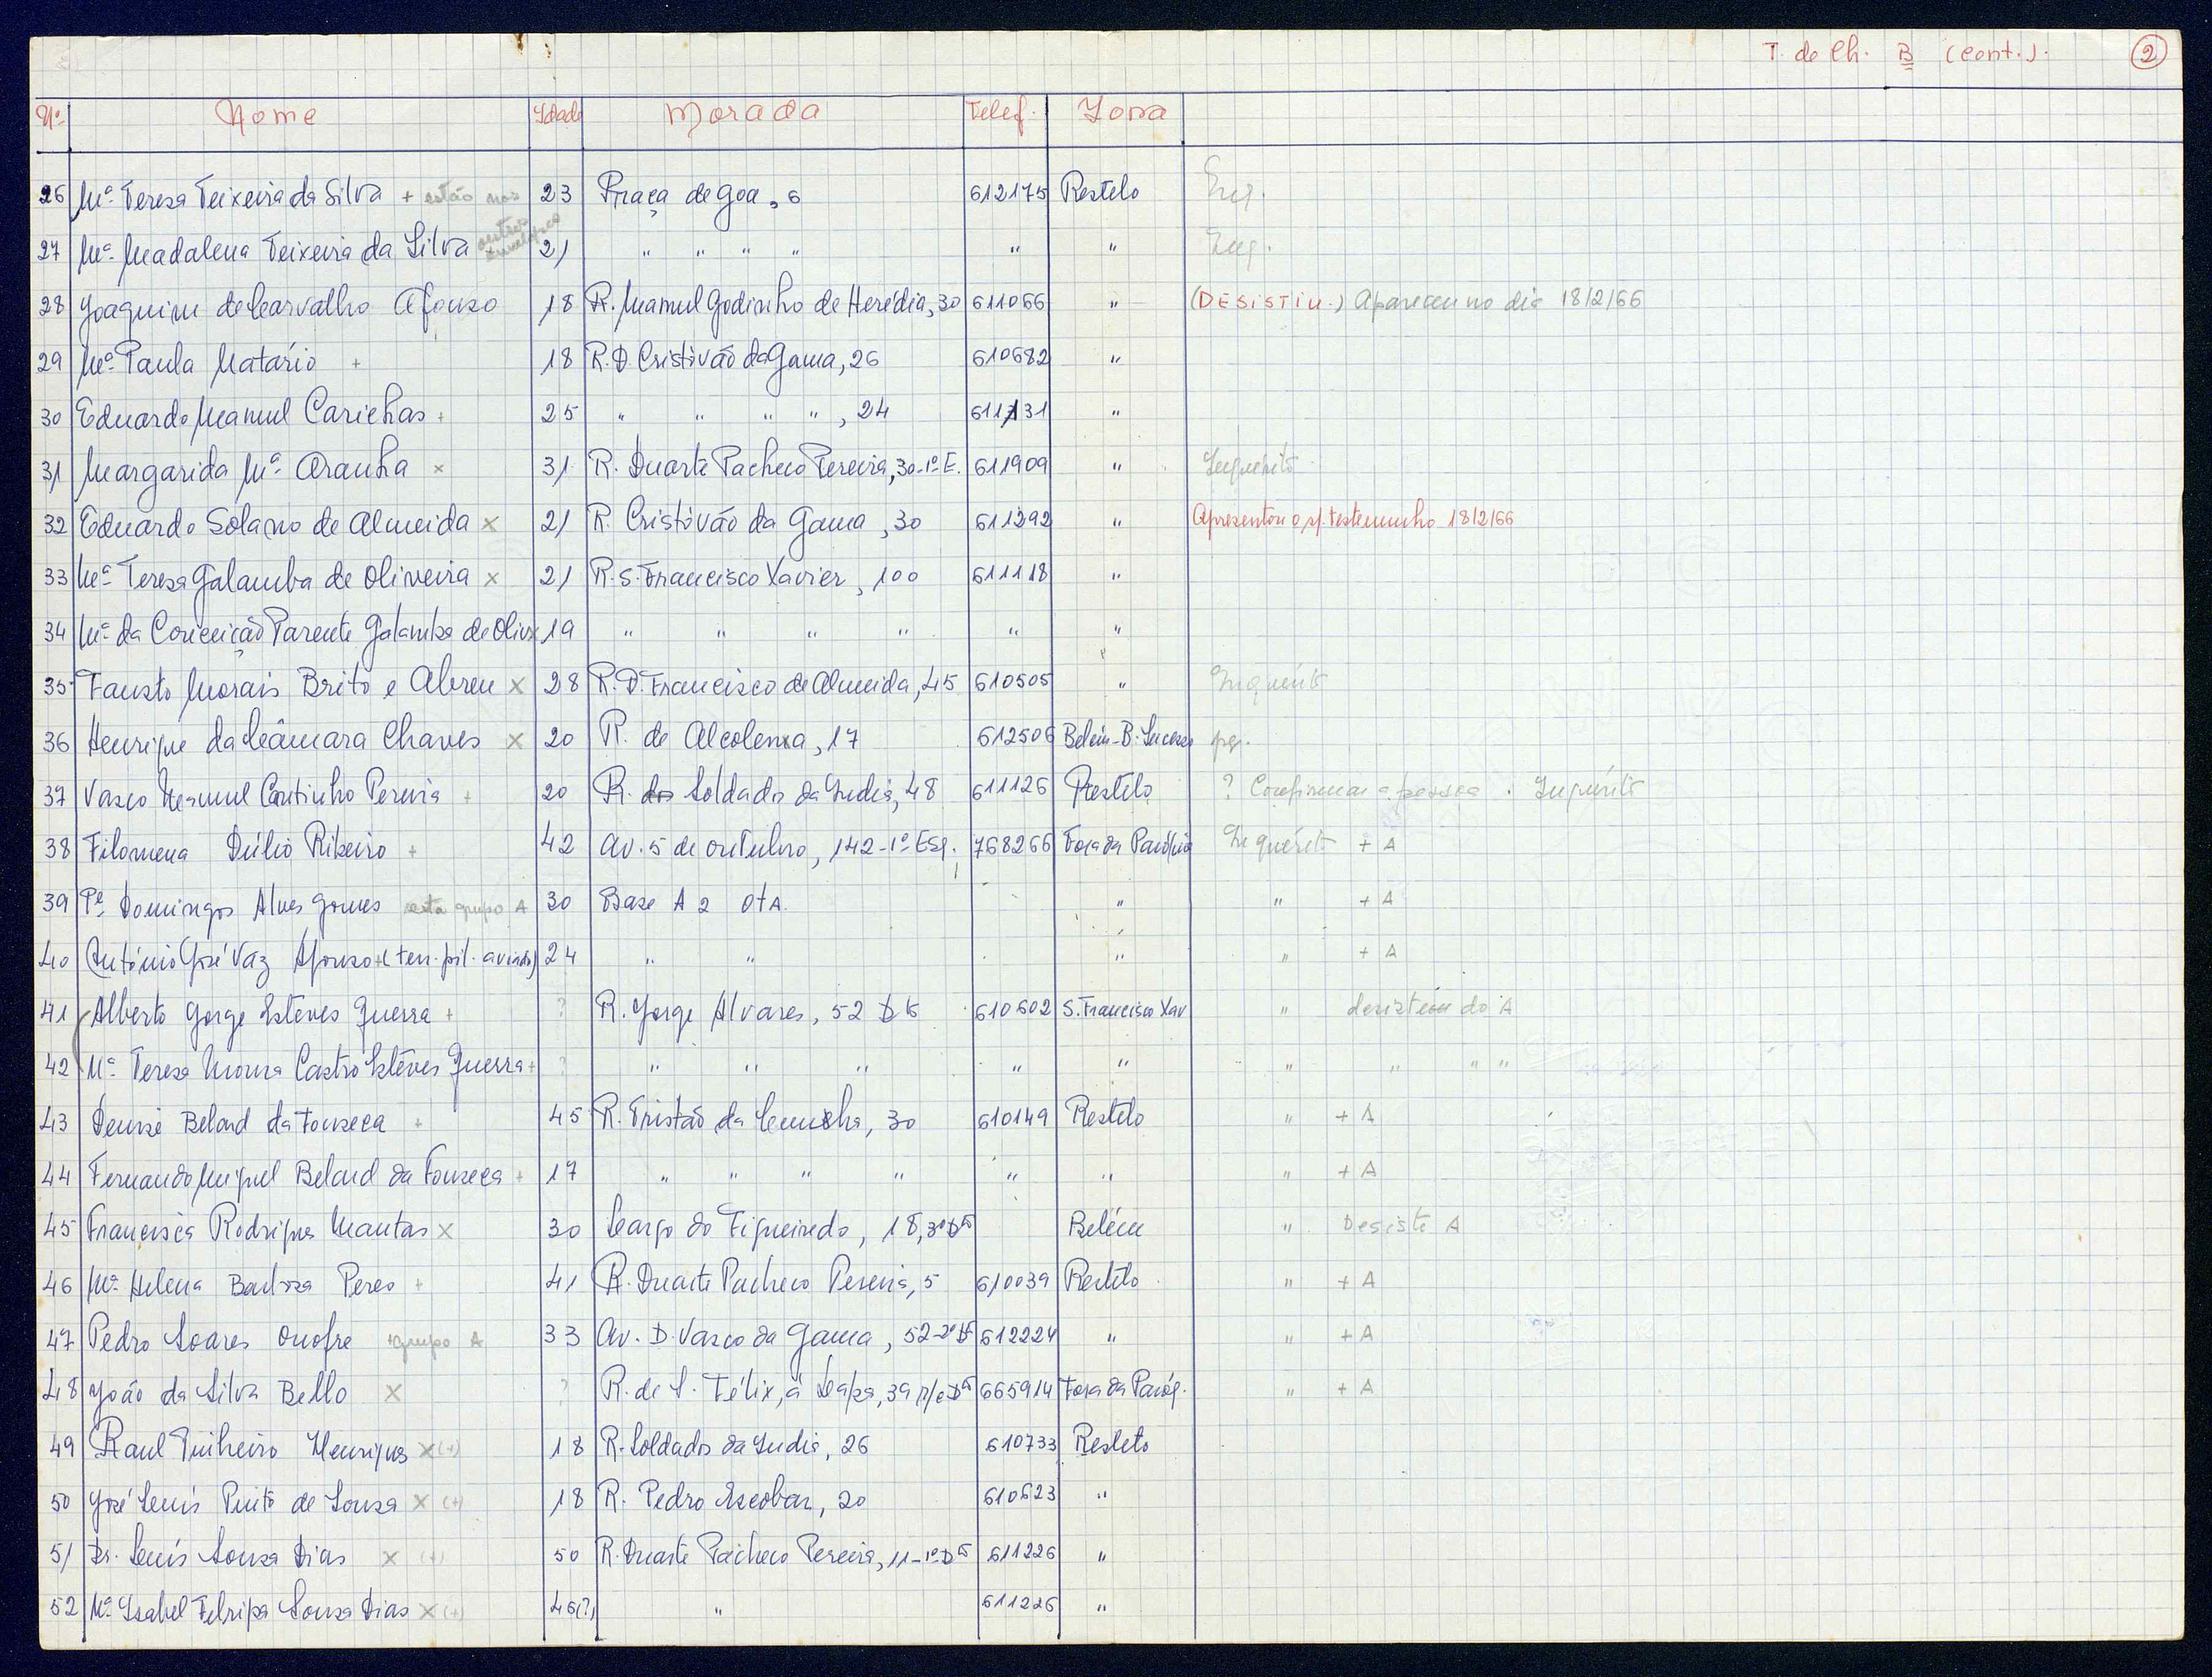 T. de Ch. B (cont.). 2
Nº Nome Idade Morada Telef. Zona
26 Mª Teresa Teixeira da Silva + estão nos outros 23 Praça de Goa, 6 612175 Restelo
27 Mª Madalena Teixeira da Silva 21 " " " " " "
28 Joaquim de Carvalho Afonso 18 R. Manuel Godinho de Herédia, 30 611066 " (DESISTIU.) Apareceu no dia 18/2/66
29 Mª Paula Natário + 18 R. D. Cristóvão da Gama, 26 610682 "
30 Eduardo Manuel Carichas + 25 " " " ", 24 "
31 Margarida Mª Aranha x 31 R. Duarte Pacheco Pereira, 30-1º E. 611909 " Inquérito
32 Eduardo Solano de Almeida x 21 R. Cristóvão da Gama, 30 611292 " Apresentou o s/. testemunho 18/2/66
33 Mª Teresa Galamba de Oliveira x 21 R. S. Francisco Xavier, 100 611118 "
34 Mª da Conceição Parente Galamba de Oliv x 19 " " " " " "
35 Fausto Morais Brito e Abreu x 28 R. D. Francisco de Almeida, 45 610505 " Inquérito
36 Henrique da Câmara Chaves x 20 R. de Alcolena, 17 612506 Belém-B. Sucesso
37 Vasco Manuel Coutinho Pereira + 20 R. dos Soldados da India, 48 611126 Restelo ? Confirmar a pessoa . Inquérito
38 Filomena Dúlio Ribeiro + 42 Av. 5 de outubro, 142-1º Esq. 768266 Fora da Paróquia Inquérito + A
39 Pe. Domingos Alves Gomes está grupo A 30 Base A 2 OTA. " " + A
40 António José Vaz Afonso + (ten. pil. aviador) 24 " " " " + A
41 Alberto Jorge Esteves Guerra + ? R. Jorge Alvares, 52 Dto 610602 S. Francisco Xav " desistiu do A
42 Mª Teresa Moura Castro Esteves Guerra + ? " " " " " " " " "
43 Denise Belard da Fonseca + 45 R. Tristão da Cunha, 30 610149 Restelo " + A
44 Fernando Miguel Belard da Fonseca + 17 " " " " " " " + A
45 Francisca Rodrigues Mantas x 30 Largo do Figueiredo, 18, 3º Dto Belém " Desiste A
46 Mª Helena Barbosa Peres + 41 R. Duarte Pacheco Pereira, 5 610039 Restelo " + A
47 Pedro Soares Onofre + grupo A 33 Av. D. Vasco da Gama, 52-2º Dt 612224 " " + A
48 João da Silva Bello x ? R. de S. Félix, à Lapa, 39 r/c Dto 665914 Fora da Paróq. " + A
49 Raul Pinheiro Henriques x (+) 18 R. Soldados da India, 26 610733 Restelo
50 José Luís Pinto de Sousa x (+) 18 R. Pedro Escobar, 20 610623 "
51 Dr. Luís Sousa Dias x (+) 50 R. Duarte Pacheco Pereira, 11-1º Dto 611226 "
52 Mª Isabel Sousa Dias x (+) 46(?) " 611226 "